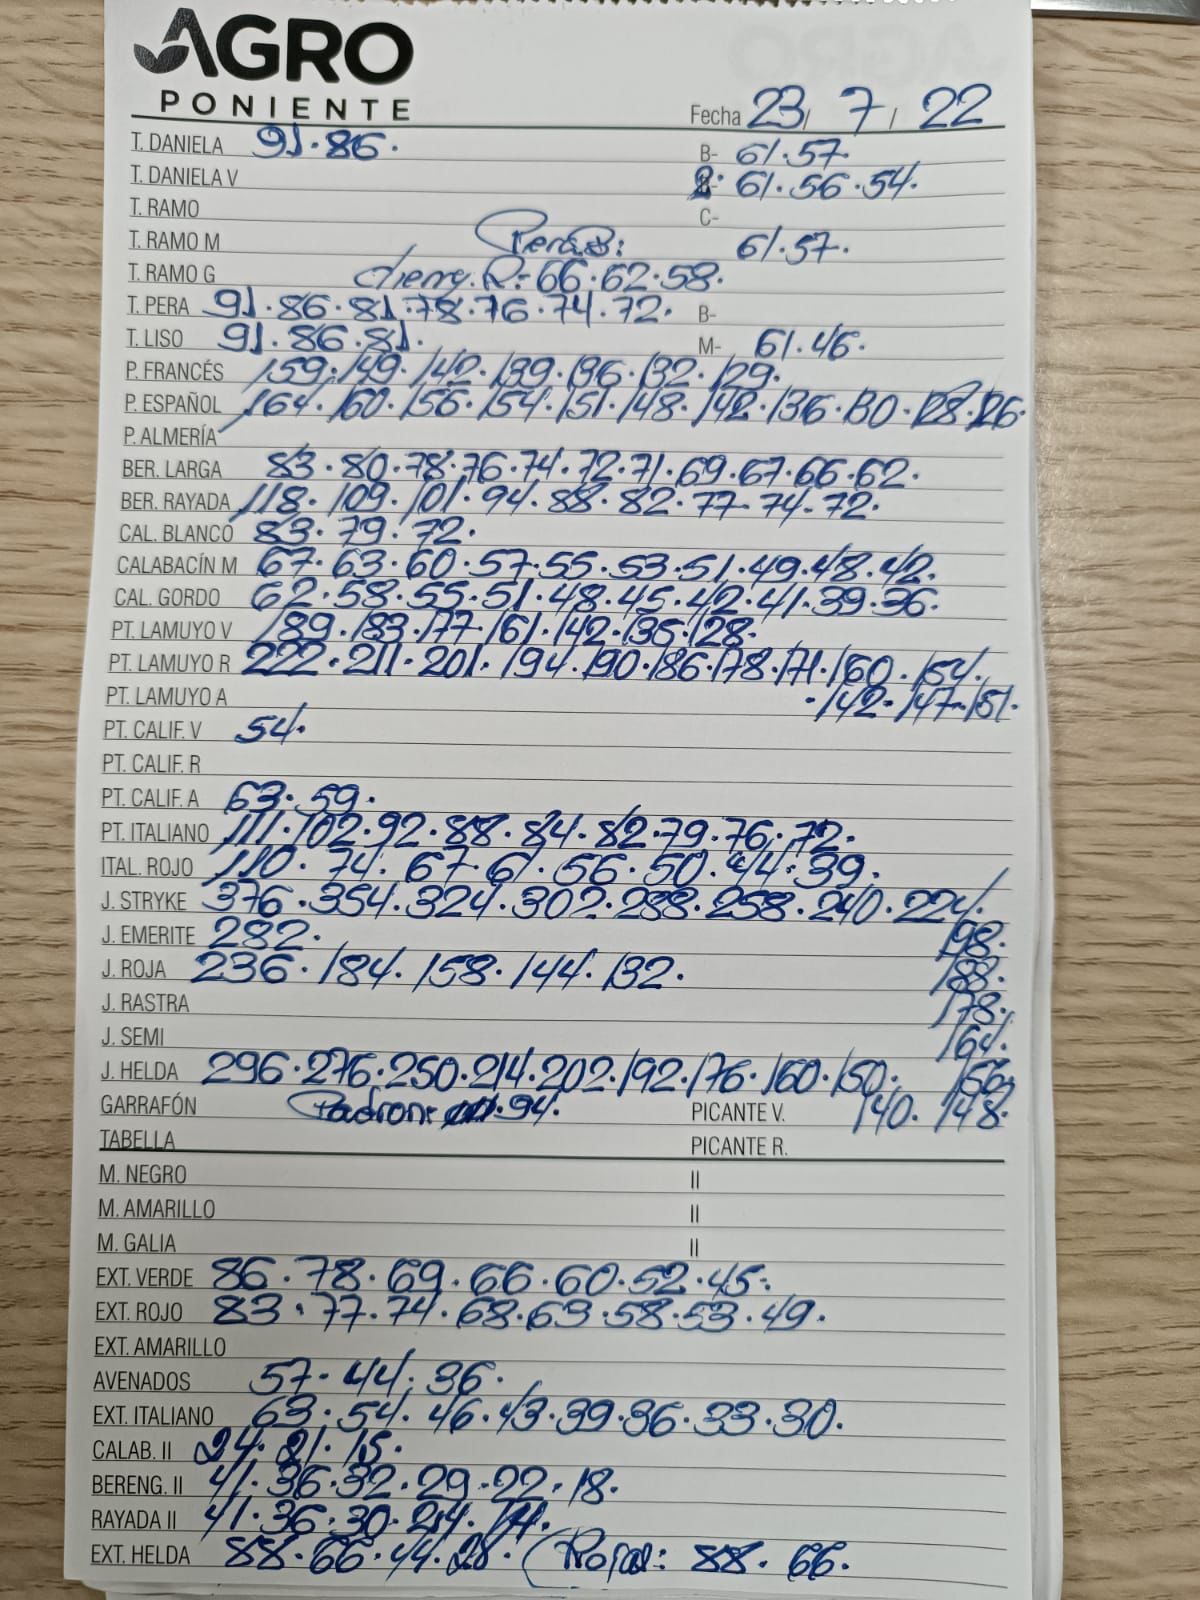 AGRO
PONIENTE
Fecha 23/ 7 / 22
T. DANIELA 91.86. B- 61.57.
T. DANIELA V 2: 61.56.54.
T. RAMO C-
T. RAMO M Pera B: 61.57.
T. RAMO G cherry. R: 66.62.58.
T. PERA 91.86.81.78.76.74.72. B-
T. LISO 91.86.81. M- 61.46.
P. FRANCÉS 159.149.142.139.136.132.129.
P. ESPAÑOL 164.160.156.154.151.148.142.136.130.128.126.
P. ALMERÍA
BER. LARGA 83.80.78.76.74.72.71.69.67.66.62.
BER. RAYADA 118.109.101.94.88.82.77.74.72.
CAL. BLANCO 83.79.72.
CALABACÍN M 67.63.60.57.55.53.51.49.48.42.
CAL. GORDO 62.58.55.51.48.45.42.41.39.36.
PT. LAMUYO V 189.183.177.161.142.135.128.
PT. LAMUYO R 222.211.201.194.190.186.178.171.160.154.
PT. LAMUYO A .142.147.151.
PT. CALIF. V 54.
PT. CALIF. R
PT. CALIF. A 63.59.
PT. ITALIANO 111.102.92.88.84.82.79.76.72.
ITAL. ROJO 110.74.67.61.56.50.44.39.
J. STRYKE 376.354.324.302.288.258.240.224.
J. EMERITE 282. 198.
J. ROJA 236.184.158.144.132. 188.
J. RASTRA 178.
J. SEMI 164.
J. HELDA 296.276.250.214.202.192.176.160.150. 156
GARRAFÓN Padron: 94. PICANTE V. 140.148.
TABELLA PICANTE R.
M. NEGRO II
M. AMARILLO II
M. GALIA II
EXT. VERDE 86.78.69.66.60.52.45.
EXT. ROJO 83.77.74.68.63.58.53.49.
EXT. AMARILLO
AVENADOS 57.44.36.
EXT. ITALIANO 63.54.46.43.39.36.33.30.
CALAB. II 24.21.15.
BERENG. II 41.36.32.29.22.18.
RAYADA II 41.36.30.24.14.
EXT. HELDA 88.66.44.28. (Roja: 88.66.